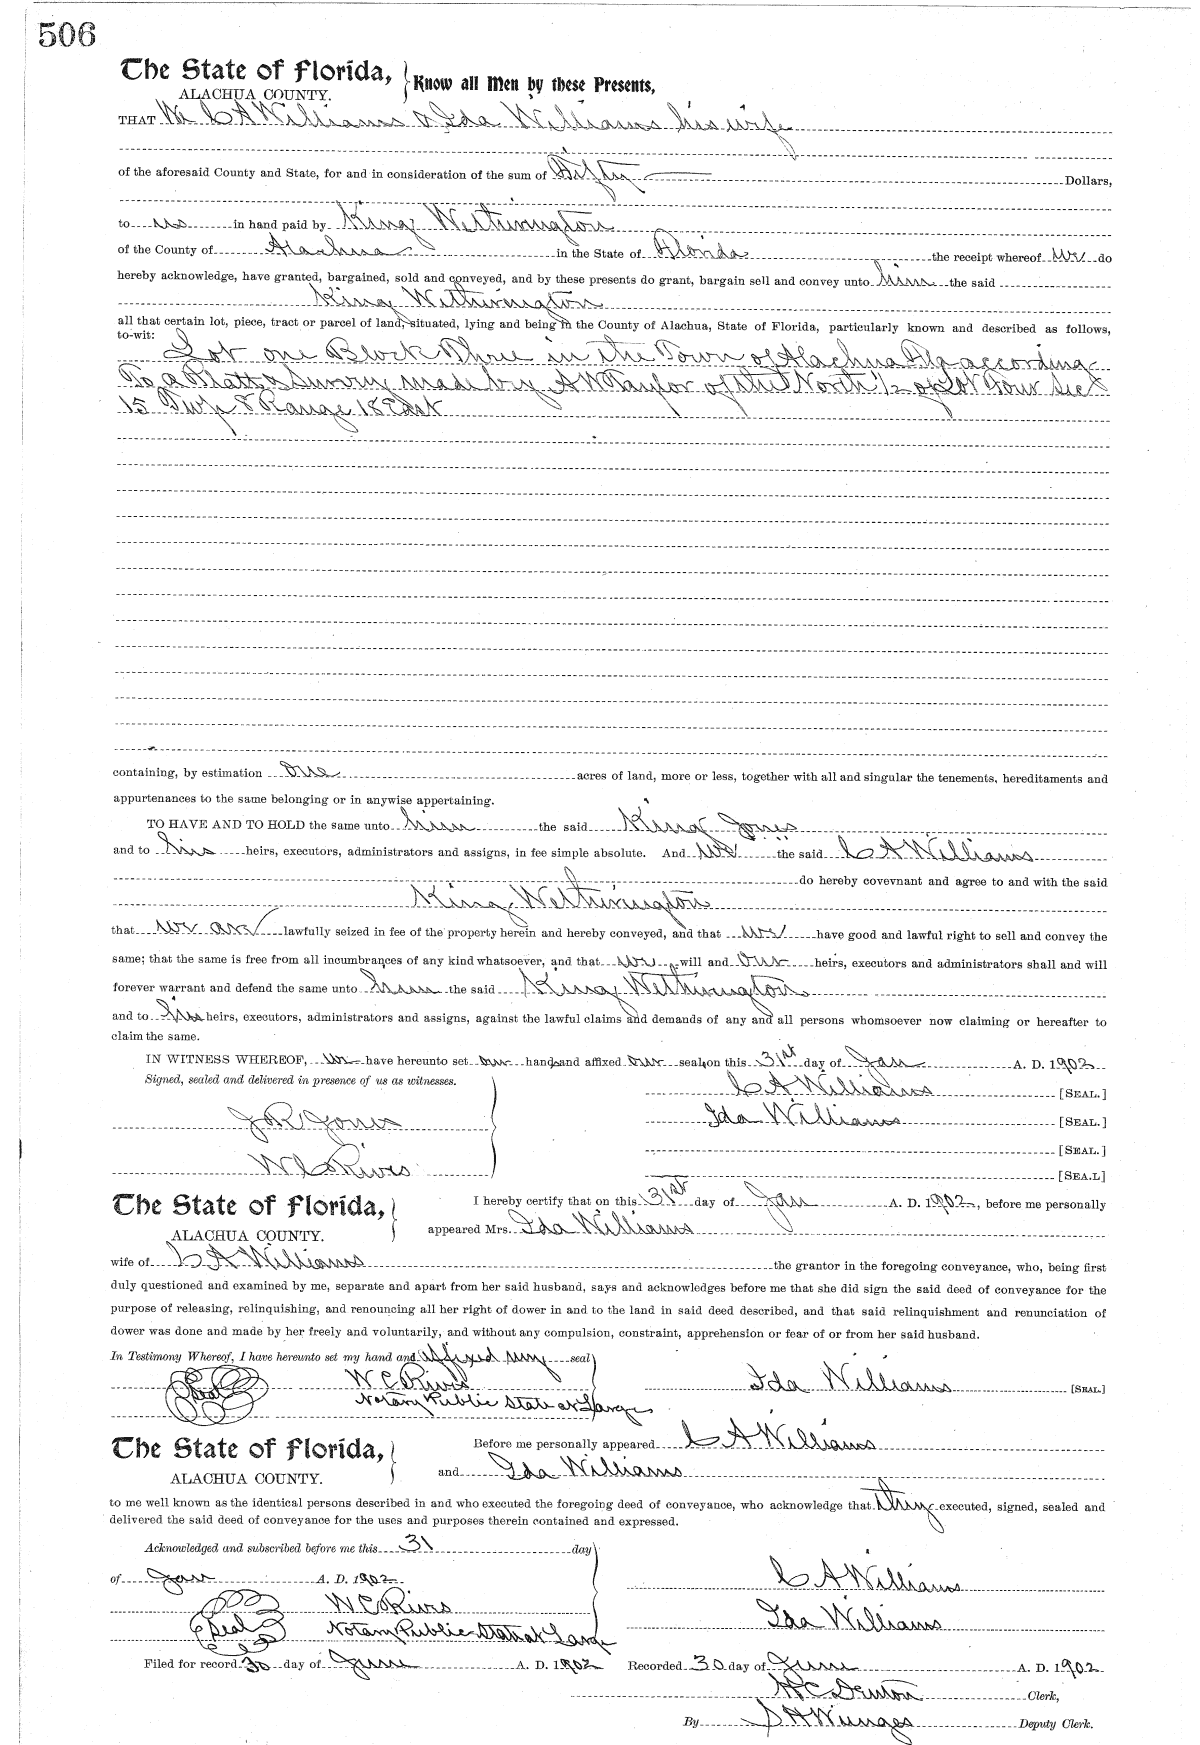 506
The State of Florida, } Know all Men by these Presents,
ALACHUA COUNTY.
THAT We C A Williams & Ida Williams his wife
of the aforesaid County and State, for and in consideration of the sum of Fifty Dollars,
to us in hand paid by King Wetherington
of the County of Alachua in the State of Florida the receipt whereof we do
hereby acknowledge, have granted, bargained, sold and conveyed, and by these presents do grant, bargain sell and convey unto him the said
King Wetherington
all that certain lot, piece, tract or parcel of land, situated, lying and being in the County of Alachua, State of Florida, particularly known and described as follows,
to-wit:
Lot one Block Three in the Town of Alachua Fla according
To a Platt & Survey made by A W Taylor of the North 1/2 of Lot Four Sec
15 Twp 8 Range 18 East
containing, by estimation one acres of land, more or less, together with all and singular the tenements, hereditaments and
appurtenances to the same belonging or in anywise appertaining.
TO HAVE AND TO HOLD the same unto him the said King Jones
and to his heirs, executors, administrators and assigns, in fee simple absolute. And we the said C A Williams
do hereby covevnant and agree to and with the said
King Wetherington
that we are lawfully seized in fee of the property herein and hereby conveyed, and that we have good and lawful right to sell and convey the
same; that the same is free from all incumbrances of any kind whatsoever, and that we will and our heirs, executors and administrators shall and will
forever warrant and defend the same unto him the said King Wetherington
and to his heirs, executors, administrators and assigns, against the lawful claims and demands of any and all persons whomsoever now claiming or hereafter to
claim the same.
IN WITNESS WHEREOF, we have hereunto set our hands and affixed our seals on this 31st day of Jan A. D. 1902
Signed, sealed and delivered in presence of us as witnesses.
C A Williams [SEAL.]
J R Jones Ida Williams [SEAL.]
[SEAL.]
W C Rives [SEA.L]
The State of Florida, } I hereby certify that on this 31st day of Jan A. D. 1902, before me personally
ALACHUA COUNTY. appeared Mrs. Ida Williams
wife of C A Williams the grantor in the foregoing conveyance, who, being first
duly questioned and examined by me, separate and apart from her said husband, says and acknowledges before me that she did sign the said deed of conveyance for the
purpose of releasing, relinquishing, and renouncing all her right of dower in and to the land in said deed described, and that said relinquishment and renunciation of
dower was done and made by her freely and voluntarily, and without any compulsion, constraint, apprehension or fear of or from her said husband.
In Testimony Whereof, I have hereunto set my hand and affixed my seal
Seal W C Rives Ida Williams [SEAL.]
Notary Public State at Large
The State of Florida, } Before me personally appeared C A Williams
ALACHUA COUNTY. and Ida Williams
to me well known as the identical persons described in and who executed the foregoing deed of conveyance, who acknowledge that they executed, signed, sealed and
delivered the said deed of conveyance for the uses and purposes therein contained and expressed.
Acknowledged and subscribed before me this 31 day
of Jan A. D. 1902 C A Williams
W C Rives
Seal Notary Public State at Large Ida Williams
Filed for record 30 day of June A. D. 1902 Recorded 30 day of June A. D. 1902
H C Denton Clerk,
By S H Wienges Deputy Clerk.